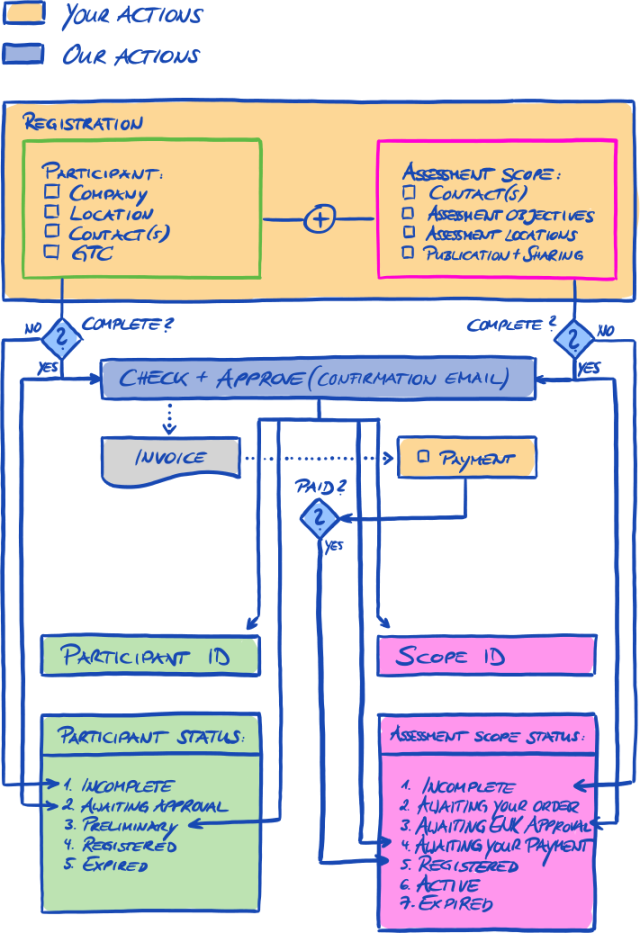 YOUR ACTIONS
OUR ACTIONS
REGISTRATION
PARTICIPANT:
COMPANY
LOCATION
CONTACT(S)
GTC
+
ASSESSMENT SCOPE:
CONTACT(S)
ASSESSMENT OBJECTIVES
ASSESSMENT LOCATIONS
PUBLICATION + SHARING
NO
?
COMPLETE?
YES
COMPLETE?
?
NO
YES
CHECK + APPROVE (CONFIRMATION EMAIL)
INVOICE
PAYMENT
PAID?
?
YES
PARTICIPANT ID
SCOPE ID
PARTICIPANT STATUS:
1. INCOMPLETE
2. AWAITING APPROVAL
3. PRELIMINARY
4. REGISTERED
5. EXPIRED
ASSESSMENT SCOPE STATUS:
1. INCOMPLETE
2. AWAITING YOUR ORDER
3. AWAITING ENX APPROVAL
4. AWAITING YOUR PAYMENT
5. REGISTERED
6. ACTIVE
7. EXPIRED